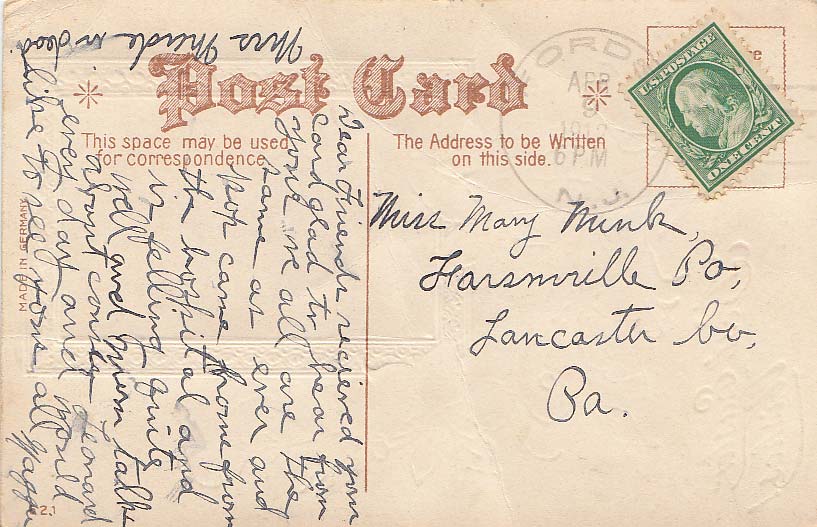 Post Card
This space may be used
for correspondence.
The Address to be Written
on this side.
U.S. POSTAGE
ONE CENT
FORDS
APR
9
1912
6 PM
N.J.
Miss Mary Mink,
Farsmville Po,
Lancaster Co,
Pa.
Dear Friends recieved your
card glad to hear from
you we all are the
same as ever and
pop came home from
the hospital and
is felling quite
well and Mom talks
about county Leonard
every day and would
like to see yous all
Mrs
MADE IN GERMANY